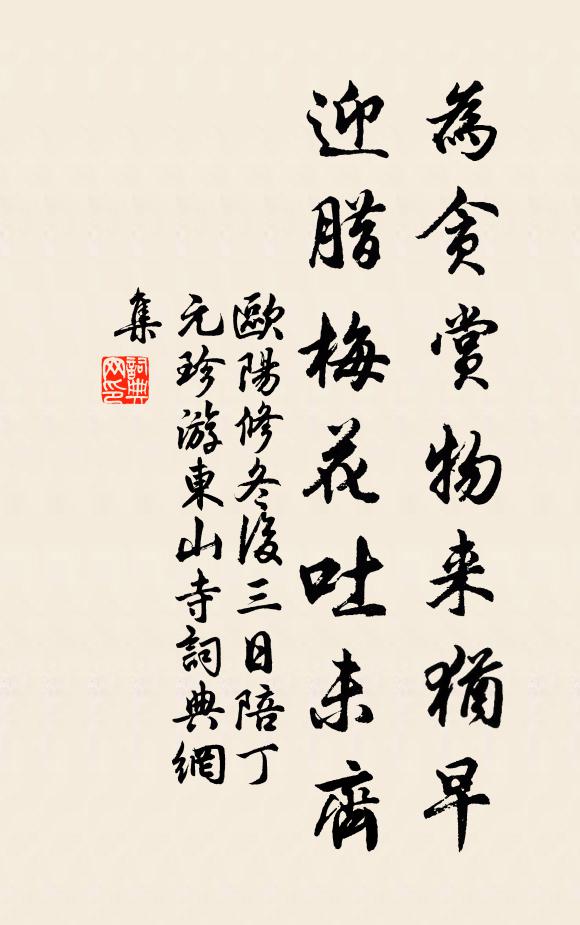 為貪賞物来猶早
迎腊梅花吐未齊
歐陽修冬後三日陪丁
元珍游東山寺詞典網
集
詞典
网印